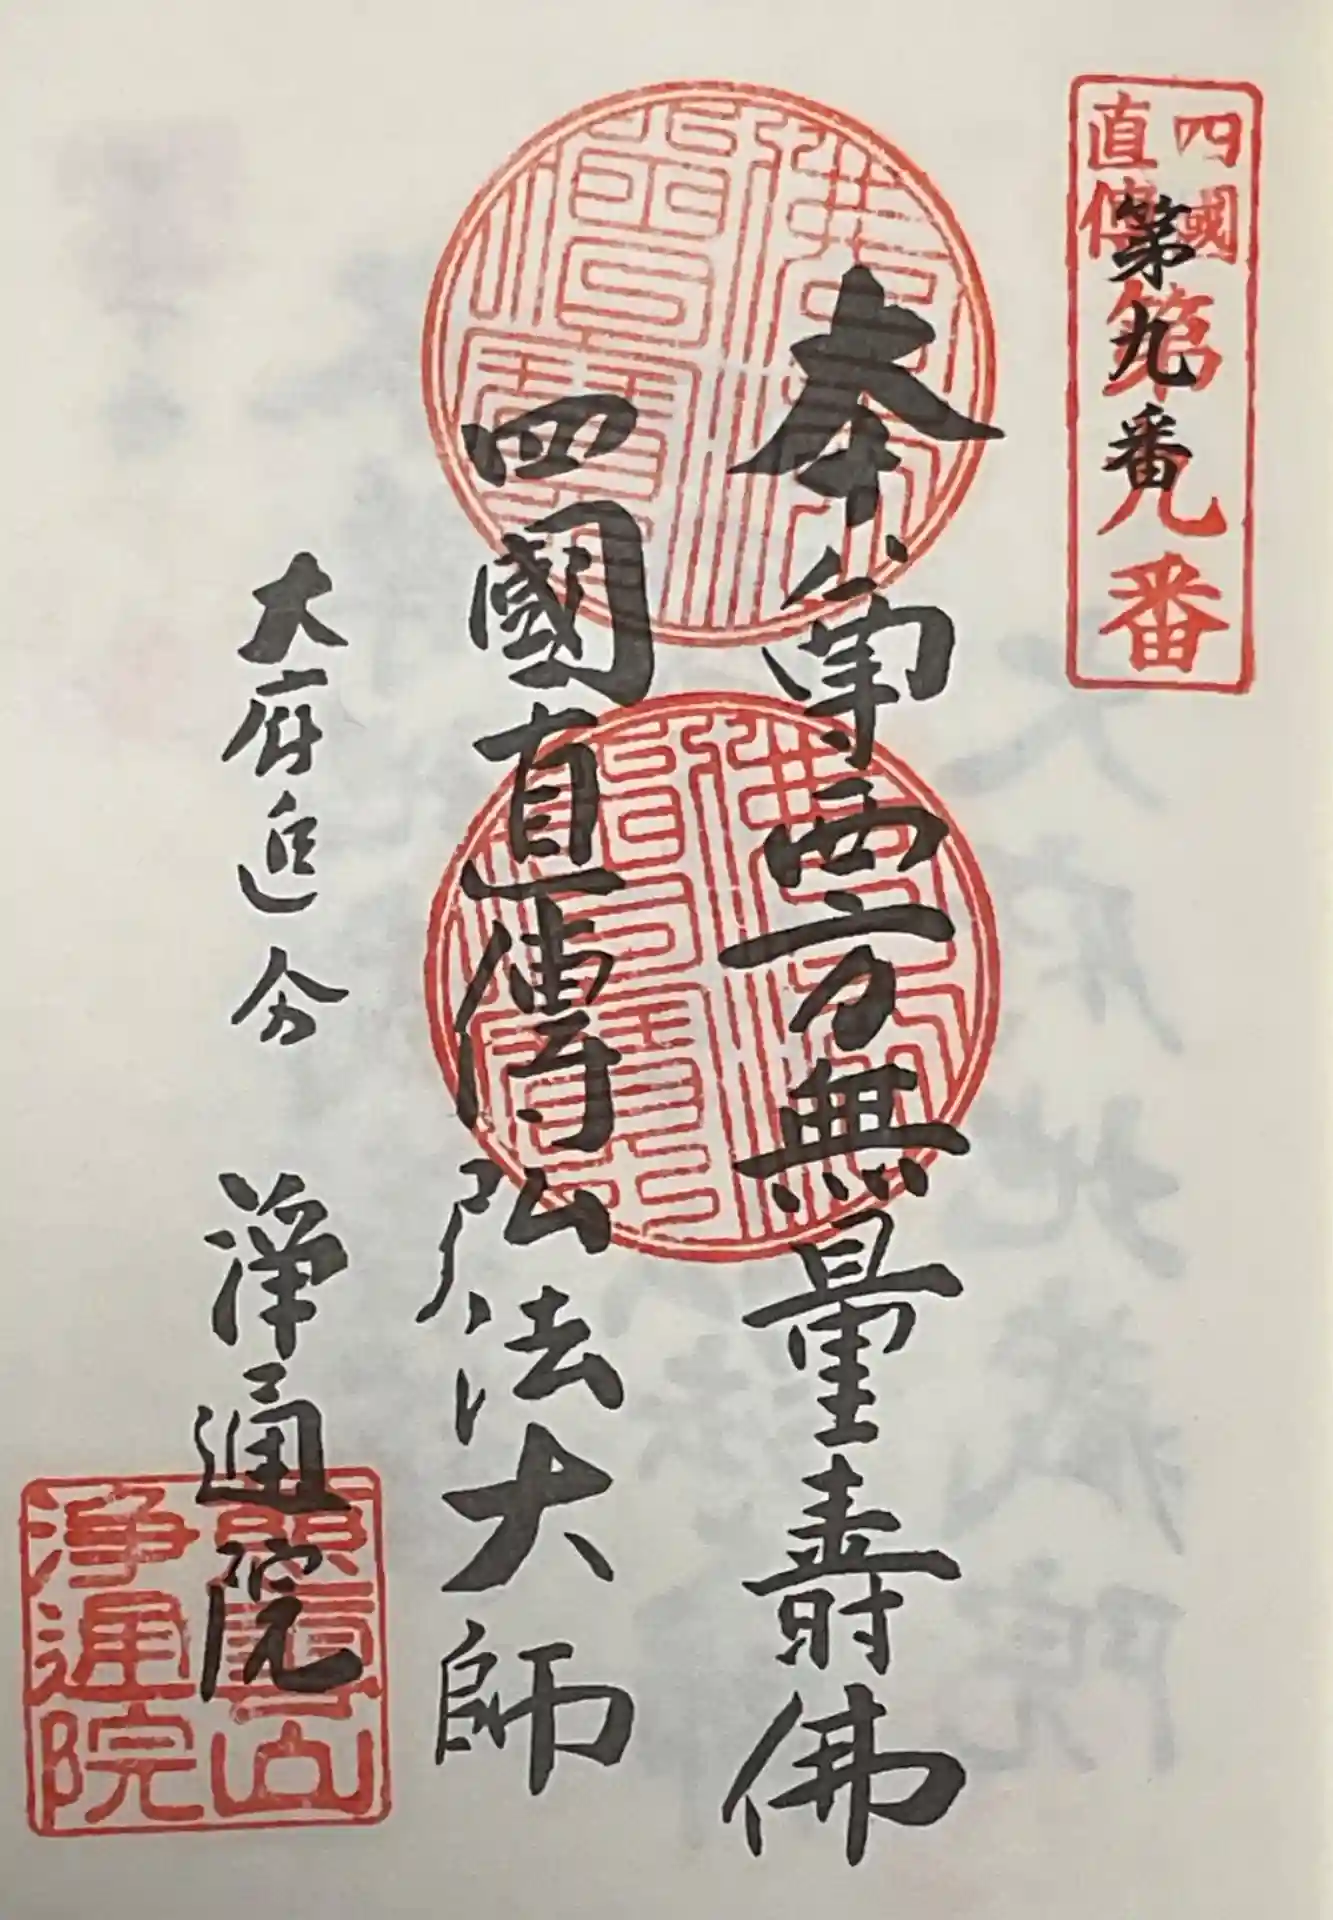 四國
直傳
第九番
第九番
本尊西方無量壽佛
四國直傳弘法大師
大府追分 淨通院
山
淨通院